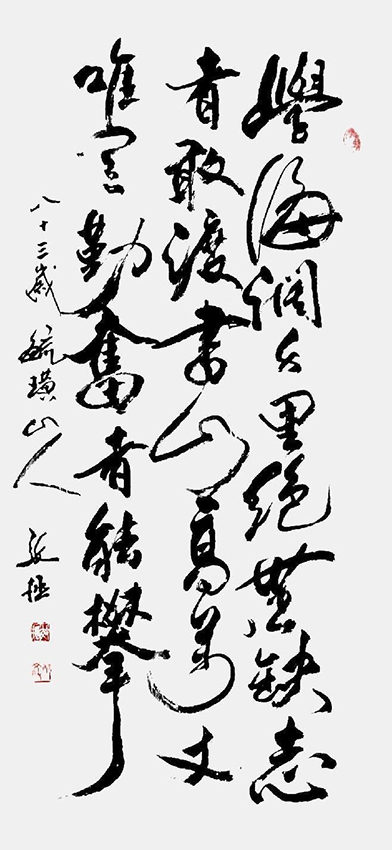 學海濶千里絕無缺志
者敢渡書山高萬丈
唯勤奮者能攀
八十三歲 毓璜山人